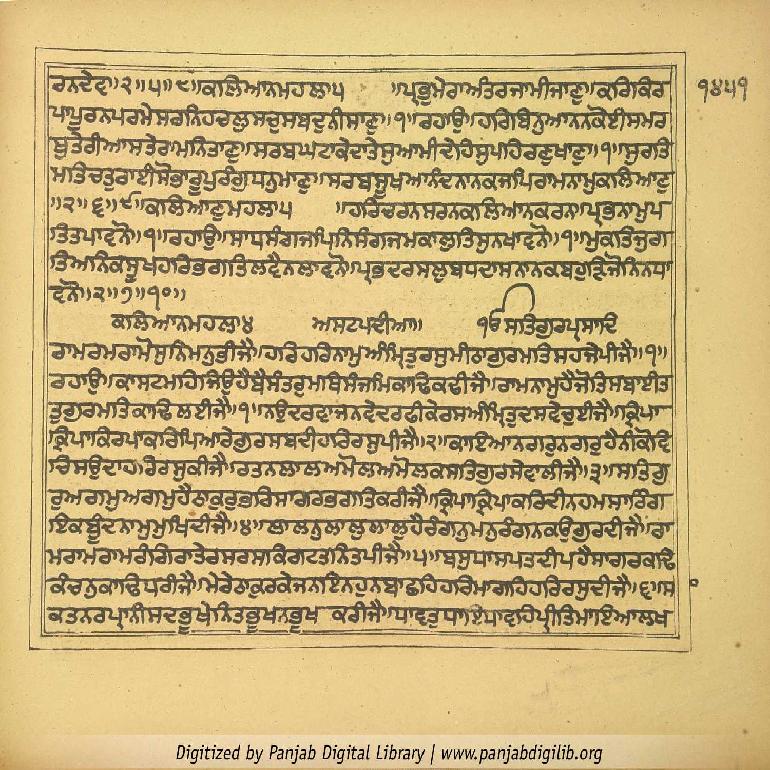 ਰਨਦੇਵਾ॥੨॥੫॥੮॥ਕਾਲਿਆਨਮਹਲਾ੫ ॥ਪ੍ਰਭੁਮੇਰਾਅੰਤਰਜਾਮੀਜਾਣੁ॥ਕਰਿਕਿਰ ੧੪੫੧
ਪਾਪੂਰਨਪਰਮੇਸਰਨਿਹਚਲੁਸਚੁਸਬਦੁਨੀਸਾਣੁ॥੧॥ਰਹਾਉ॥ਹਰਿਬਿਨੁਆਨਨਕੋਈਸਮਰ
ਥੁਤੇਰੀਆਸਤੇਰਾਮਨਿਤਾਣੁ॥ਸਰਬਘਟਾਕੇਦਾਤੇਸੁਆਮੀਦੇਹਿਸੁਪਹਿਰਣੁਖਾਣੁ॥੧॥ਸੁਰਤਿ
ਮਤਿਚਤੁਰਾਈਸੋਭਾਰੂਪੁਰੰਗੁਧਨੁਮਾਣੁ॥ਸਰਬਸੂਖਆਨੰਦਨਾਨਕਜਪਿਰਾਮਨਾਮੁਕਲਿਆਣੁ
॥੨॥੬॥੯॥ਕਾਲਿਆਣੁਮਹਲਾ੫ ॥ਹਰਿਚਰਨਸਰਨਕਲਿਆਨਕਰਨ॥ਪ੍ਰਭਨਾਮੁਪ
ਤਿਤਪਾਵਨੋ॥੧॥ਰਹਾਉ॥ਸਾਧਸੰਗਿਜਪਿਨਿਸੰਗਜਮਕਾਲੁਤਿਸੁਨਖਾਵਨੋ॥੧॥ਮੁਕਤਿਜੁਗ
ਤਿਅਨਿਕਸੂਖਹਰਿਭਗਤਿਲਵੈਨਲਾਵਨੋ॥ਪ੍ਰਭਦਰਸਲੁਬਧਦਾਸਨਾਨਕਬਹੁੜਿਜੋਨਿਨਧਾ
ਵਨੋ॥੨॥੭॥੧੦॥
ਕਲਿਆਨਮਹਲਾ੪ ਅਸਟਪਦੀਆ॥ ੴਸਤਿਗੁਰਪ੍ਰਸਾਦਿ
ਰਾਮਰਮਰਾਮੋਸੁਨਿਮਨੁਭੀਜੈ॥ਹਰਿਹਰਿਨਾਮੁਅੰਮ੍ਰਿਤੁਰਸੁਮੀਠਾਗੁਰਮਤਿਸਹਜੇਪੀਜੈ॥੧॥
ਰਹਾਉ॥ਕਾਸਟਮਹਿਜਿਉਹੈਬੈਸੰਤਰੁਮਥਿਸੰਜਮਿਕਾਢਿਕਢੀਜੈ॥ਰਾਮਨਾਮੁਹੈਜੋਤਿਸਬਾਈਤ
ਤੁਗੁਰਮਤਿਕਾਢਿਲਈਜੈ॥੧॥ਨਉਦਰਵਾਜਨਵੇਦਰਫੀਕੇਰਸਅੰਮ੍ਰਿਤੁਦਸਵੇਚੁਈਜੈ॥ਕ੍ਰਿਪਾ
ਕ੍ਰਿਪਾਕਿਰਪਾਕਰਿਪਿਆਰੇਗੁਰਸਬਦੀਹਰਿਰਸੁਪੀਜੈ॥੨॥ਕਾਇਆਨਗਰੁਨਗਰੁਹੈਨੀਕੋਵਿ
ਚਿਸਉਦਾਹਰਿਰਸੁਕੀਜੈ॥ਰਤਨਲਾਲਅਮੋਲਅਮੋਲਕਸਤਿਗੁਰਸੇਵਾਲੀਜੈ॥੩॥ਸਤਿਗੁ
ਰੁਅਗਮੁਅਗਮੁਹੈਠਾਕੁਰੁਭਰਿਸਾਗਰਭਗਤਿਕਰੀਜੈ॥ਕ੍ਰਿਪਾਕ੍ਰਿਪਾਕਰਿਦੀਨਹਮਸਾਰਿੰਗ
ਇਕਬੂੰਦਨਾਮੁਮੁਖਿਦੀਜੈ॥੪॥ਲਾਲਨੁਲਾਲੁਲਾਲੁਹੈਰੰਗਨੁਮਨੁਰੰਗਨਕਉਗੁਰਦੀਜੈ॥ਰਾ
ਮਰਾਮਰਾਮਰੰਗਿਰਾਤੇਰਸਰਸਕਿਗਟਕਨਿਤਪੀਜੈ॥੫॥ਬਸੁਧਾਸਪਤਦੀਪਹੈਸਾਗਰਕਢਿ
ਕੰਚਨੁਕਾਢਿਧਰੀਜੈ॥ਮੇਰੇਠਾਕੁਰਕੇਜਨਇਨਹੁਨਬਾਛਹਿਹਰਿਮਾਗਹਿਹਰਿਰਸੁਦੀਜੈ॥੬॥ਸਾ
ਕਤਨਰਪ੍ਰਾਨੀਸਦਭੂਖੇਨਿਤਭੂਖਨਭੂਖ ਕਰੀਜੈ॥ਧਾਵਤੁਧਾਇਧਾਵਹਿਪ੍ਰੀਤਿਮਾਇਆਲਖ
Digitized by Panjab Digital Library | www.panjabdigilib.org